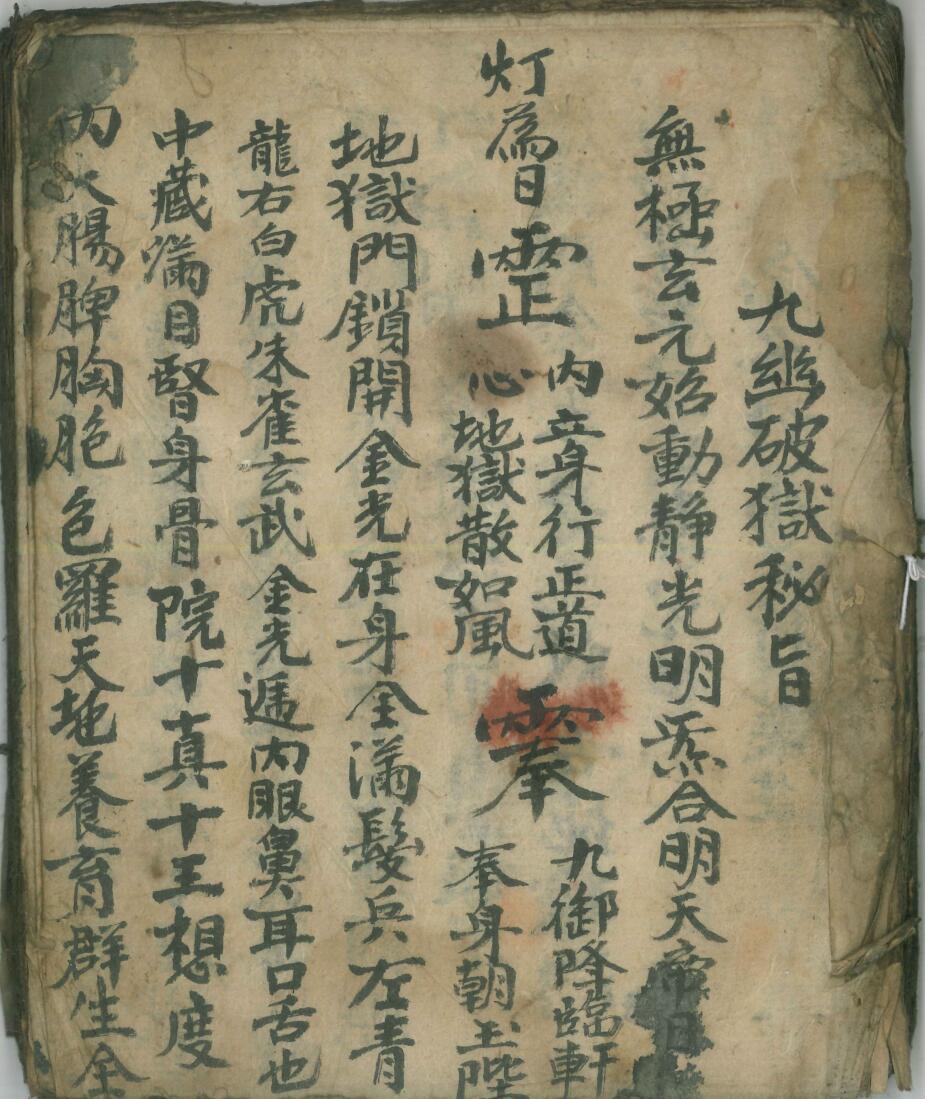 九幽破獄秘旨
無極玄元始動靜光明炁合明天帝日
灯為日𩂳
內立身行正道
心地獄散如風
九御降臨軒
奉身朝玉陛
地獄門鎖開金光在身全滿髮兵左青
龍右白虎朱雀玄武金光遞內眼鼻耳口舌也
中藏滿目腎身骨院十真十王想度
內大腸脾胸胞色羅天地養育群生全